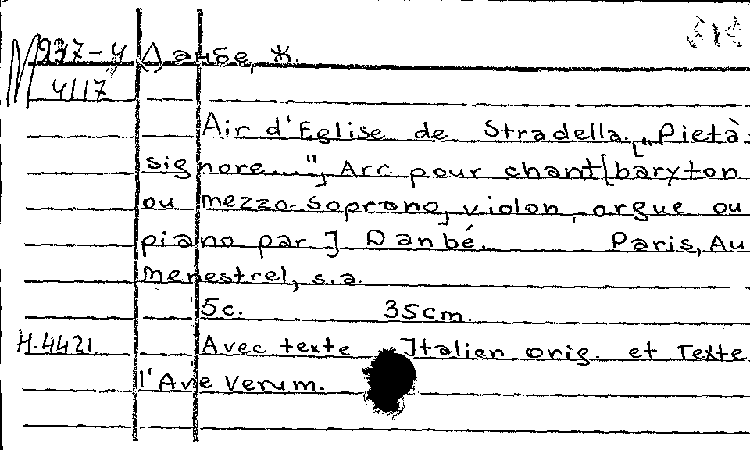 М 237-4 Данбе, Ж.
4117
Air d'Eglise de Stradella. [„Pietà-
signore..."] Arr pour chant [baryton
ou mezzo-soprano, violon, orgue ou
piano par] Danbé. Paris, Au
menestrel, s.a.
5c. 35cm.
Н.4421 Avec texte Italien orig. et Texte
l'Ave Verum.